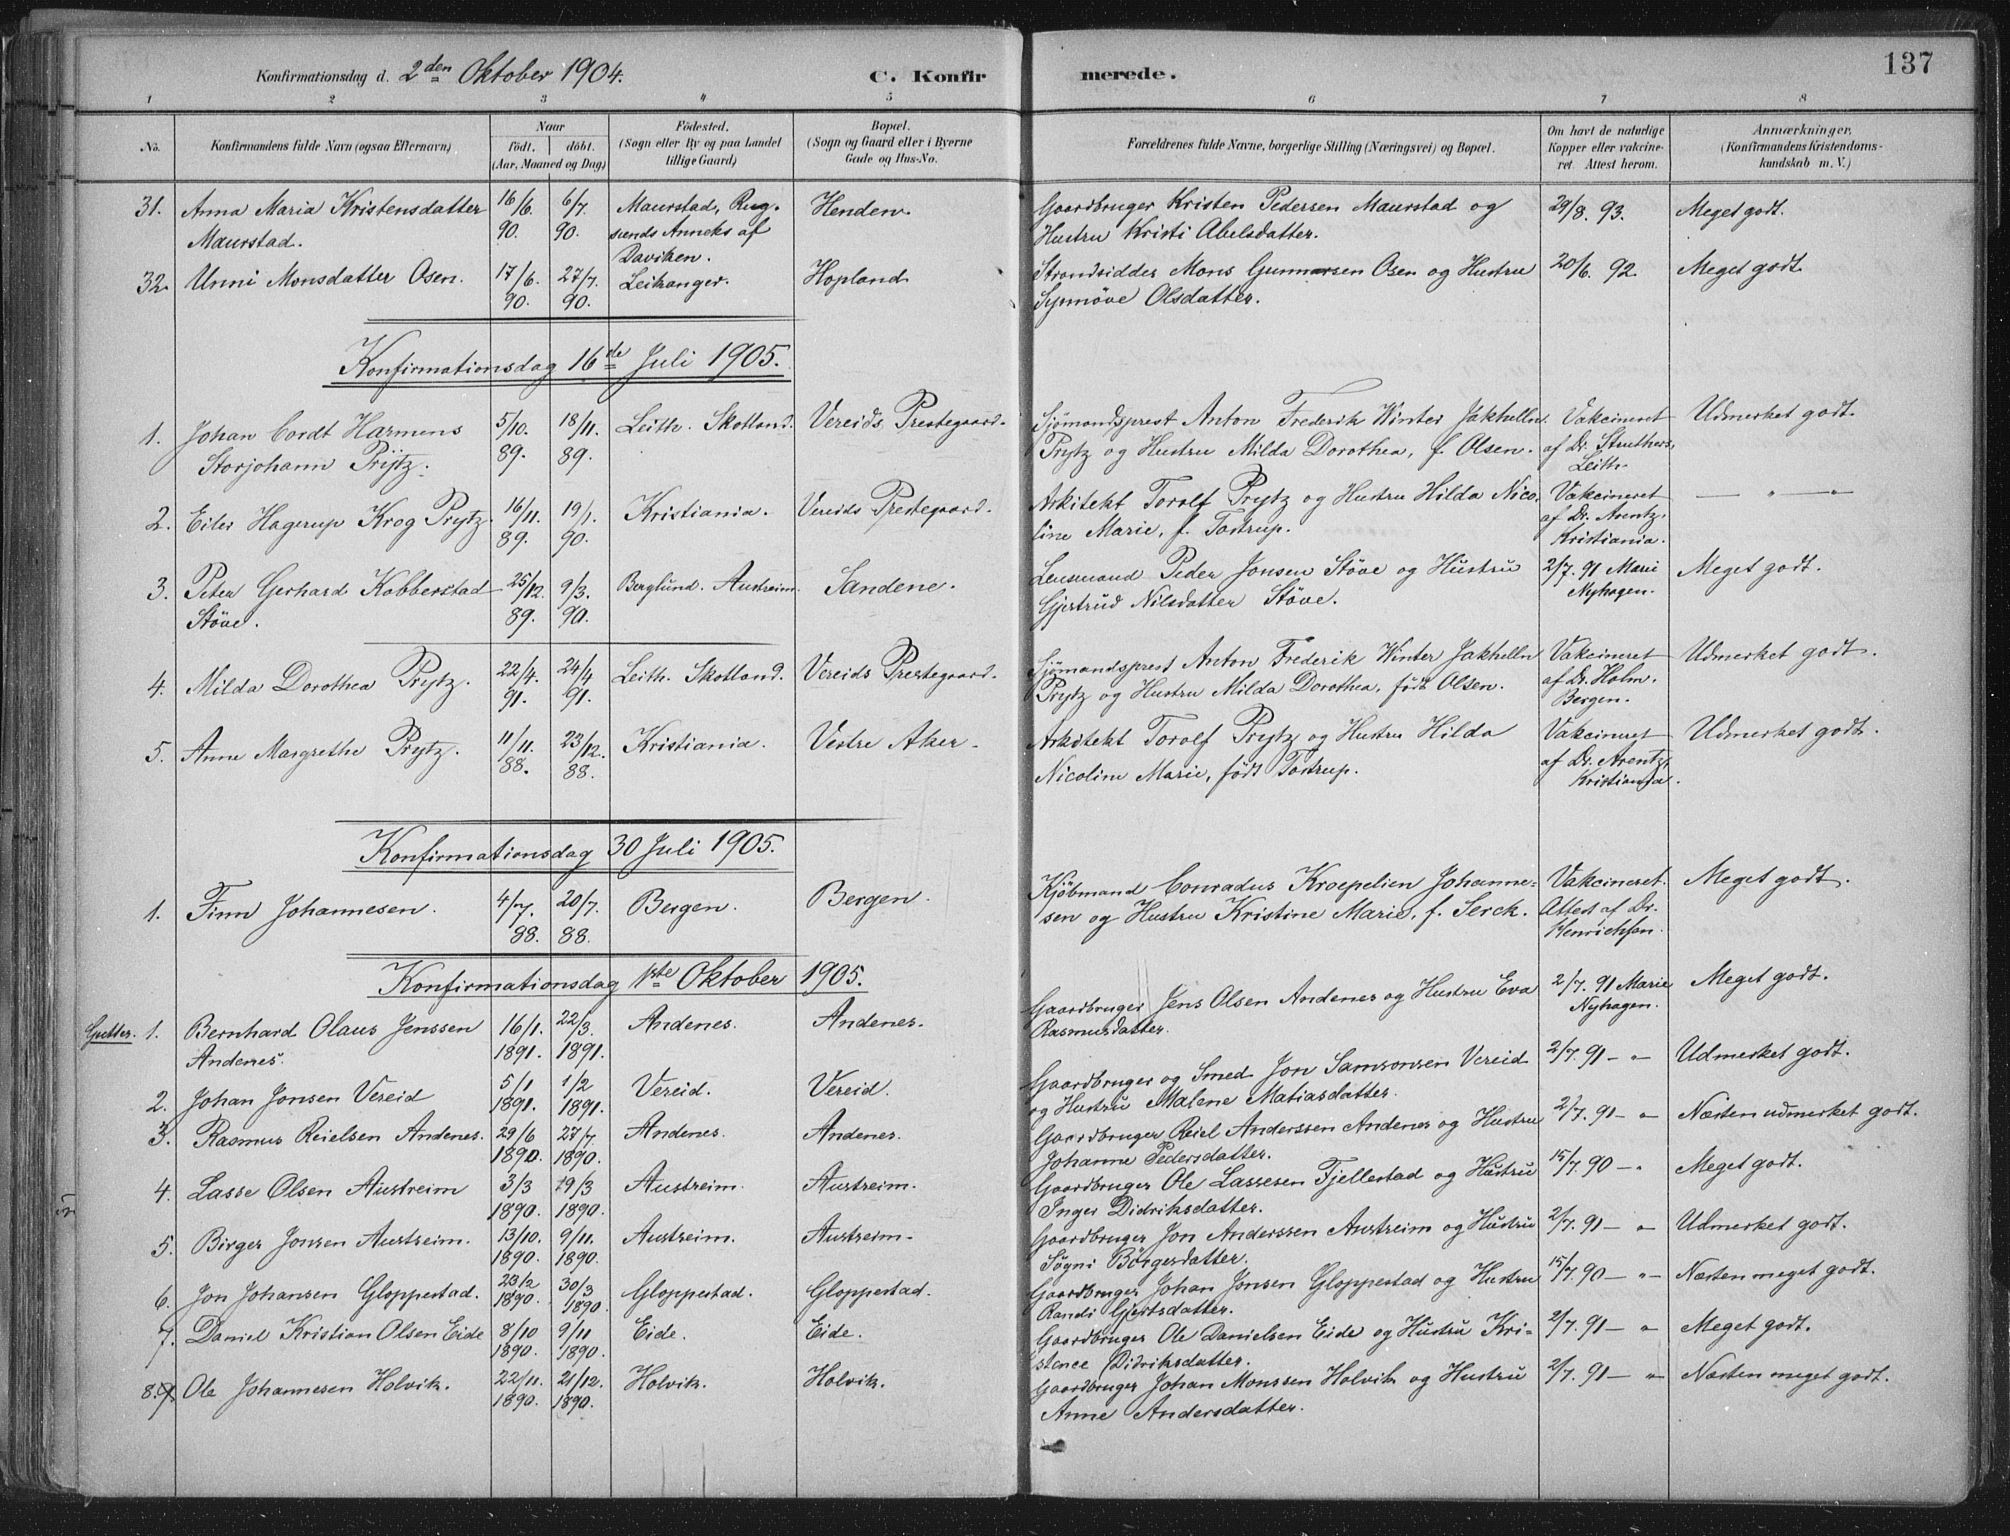 Konfirmationsdag d. 2den Oktober 1904.
C. Konfirmerede.
137
1 2 3 4 5 6 7 8
No.
Konfirmandens fulde Navn (ogsaa Efternavn)
Naar
födt. döbt.
(Aar, Maaned og Dag)
Födested.
(Sogn eller By og paa Landet
tillige Gaard)
Bopæl.
(Sogn og Gaard eller i Byerne
Gade og Hus-No.
Forældrenes fulde Navne, borgerlige Stilling (Næringsvei) og Bopæl.
Om havt de naturlige
Kopper eller vakcine-
ret. Attest herom.
Anmærkninger.
(Konfirmandens Kristendoms-
kundskab m. V.)
31. Anna Maria Kristensdatter 16/6. 6/7. Maurstad, Rug- Henden. Gaardbruger Kristen Pedersen Maurstad og 29/8. 93. Meget godt.
Maurstad. 90. 90. sunds Anneks af Hustru Kristi Abelsdatter.
Daviken.
32. Unni Monsdatter Osen. 17/6. 27/7. Leikanger. Hopland Strandsidder Mons Gunnarsen Osen og Hustru 20/6. 92. Meget godt.
90. 90. Synnöve Olsdatter.
Konfirmationsdag 16de Juli 1905.
1. Johan Cordt Harmens 5/10. 18/11. Leith. Skotland. Vereids Prestegaard. Sjömandsprest Anton Frederik Winter Jakhelln Vakcineret Udmerket godt.
Storjohann Prÿtz. 89. 89. Prytz og Hustru Milda Dorothea, f. Olsen. af Dr. Struthers,
Leith.
2. Eiler Hagerup Krog Prytz. 16/11. 19/1. Kristiania. Vereids Prestegaard. Arkitekt Torolf Prytz og Hustru Hilda Nico- Vakcineret — " — "
89. 90. line Marie, f. Tostrup. af Dr. Arentz,
Kristiania.
3. Peter Gerhard Kobberstad 25/12. 9/3. Berglund. Austreim. Sandene. Lensmand Peder Jonsen Stöve og Hustru 2/7. 91 Marie Meget godt.
Stöve. 89. 90. Gjertrud Nilsdatter Stöve. Nyhagen.
4. Milda Dorothea Prytz. 22/4. 24/4 Leith. Skotland. Vereids Prestegaard. Sjömandsprest Anton Frederik Winter Jakhelln Vakcineret Udmerket godt.
91. 91. Prytz og Hustru Milda Dorothea, födt Olsen. af Dr. Holm.
Bergen.
5. Anne Margrethe Prytz. 11/11. 23/12. Kristiania. Vestre Aker. Arkitekt Torolf Prytz og Hustru Hilda Vakcineret Udmerket godt.
88. 88. Nicoline Marie, födt Tostrup. af Dr. Arentz,
Kristiania.
Konfirmationsdag 30 Juli 1905.
1. Finn Johannesen. 4/7. 20/7. Bergen. Bergen. Kjöbmand Conradus Kroepelien Johanne- Vakcineret. Meget godt.
88. 88. sen og Hustru Kristine Marie, f. Serck. Attest af Dr.
Henrichsen.
Konfirmationsdag 1ste Oktober 1905.
Gutter. 1. Bernhard Olaus Jenssen 16/1. 22/3. Andenes. Andenes. Gaardbruger Jens Olsen Andenes og Hustru Eva 2/7. 91 Marie Meget godt.
Andenes. 1891. 1891. Rasmusdatter. Nyhagen.
2. Johan Jonsen Vereid 5/1 1/2 Vereid. Vereid. Gaardbruger og Smed Jon Samsonsen Vereid 2/7. 91 — " Udmerket godt.
1891. 1891. og Hustru Malene Matiasdatter.
3. Rasmus Reielsen Andenes. 29/6 27/7. Andenes. Andenes. Gaardbruger Reiel Anderssen Andenes og Hustru 2/7. 91 — " Næsten udmerket godt.
1890. 1890. Johanne Pedersdatter.
4. Lasse Olsen Austreim 3/3 19/3 Austreim. Austreim. Gaardbruger Ole Lassesen Fjellestad og Hustru 15/7. 90 — " Meget godt.
1890. 1890. Inger Didriksdatter.
5. Birger Jonsen Austreim. 13/10. 9/11. Austreim. Austreim. Gaardbruger Jon Anderssen Austreim og Hustru 2/7. 91 — " Udmerket godt.
1890. 1890. Sögni Börgesdatter.
6. Jon Johansen Gloppestad. 23/2 30/3 Gloppestad. Gloppestad. Gaardbruger Johan Jonsen Gloppestad og Hustru 15/7. 90 — " Næsten meget godt.
1890. 1890. Randi Gjertsdatter.
7. Daniel Kristian Olsen Eide 8/10 9/11 Eide. Eide. Gaardbruger Ole Danielsen Eide og Hustru Kri- 2/7. 91 — " Meget godt.
1890. 1890. stence Didriksdatter.
8. Ole Johannesen Holvik. 22/11. 21/12. Holvik. Holvik. Gaardbruger Johan Monssen Holvik og Hustru 2/7. 91 — " Næsten meget godt.
1890. 1890. Anne Andersdatter.